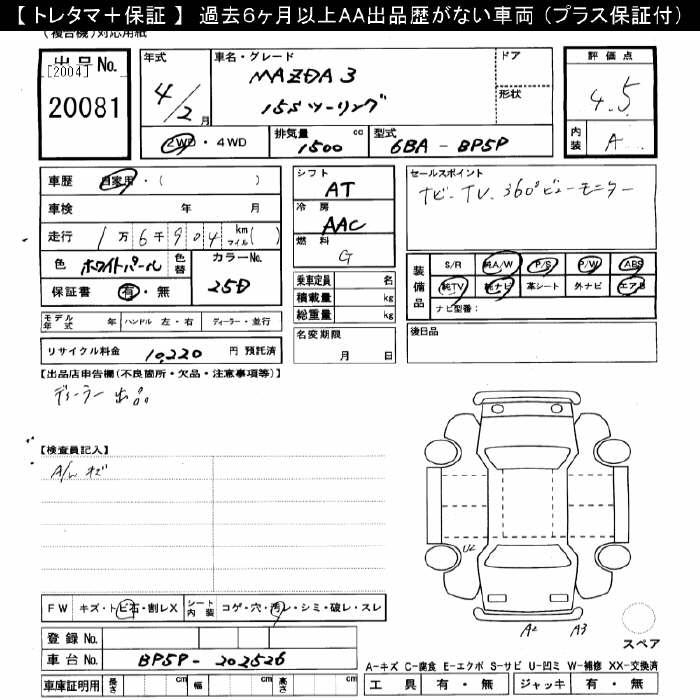 【 トレタマ＋保証 】 過去6ヶ月以上AA出品歴がない車両（プラス保証付）
(複合機)対応用紙
出品No.
[2004]
20081
年式
4/2月
車名・グレード
MAZDA 3
15Sツーリング
ドア
形状
評価点
4.5
内装 A
2WD・4WD
排気量 1500 cc
型式 6BA - BP5P
車歴 自家用・( )
車検 年 月
走行 1万6千904 km マイル( )
色 ホワイトパール 色替
カラーNo. 25D
保証書 有・無
シフト AT
冷房 AAC
燃料 G
セールスポイント
ナビ. TV. 360°ビューモニター
乗車定員 名
積載量 kg
総重量 kg
装備品
S/R 純A/W P/S P/W ABS
純TV 純ナビ 革シート 外ナビ エアB
ナビ型番：
モデル年式 年 ハンドル 左・右 ディーラー・並行
リサイクル料金 10,220 円 預託済
名変期限 月 日
後日品
【出品店申告欄(不良箇所・欠品・注意事項等)】
ディーラー出品
【検査員記入】
A/W キズ
U2
A2 A3
FW キズ・トビ石・割レX シート内装 コゲ・穴・汚レ・シミ・破レ・スレ
スペア
登録No.
車台No. BP5P - 202526
A-キズ C-腐食 E-エクボ S-サビ U-凹ミ W-補修 XX-交換済
車庫証明用 長さ cm 幅 cm 高さ cm
工具 有・無 ジャッキ 有・無